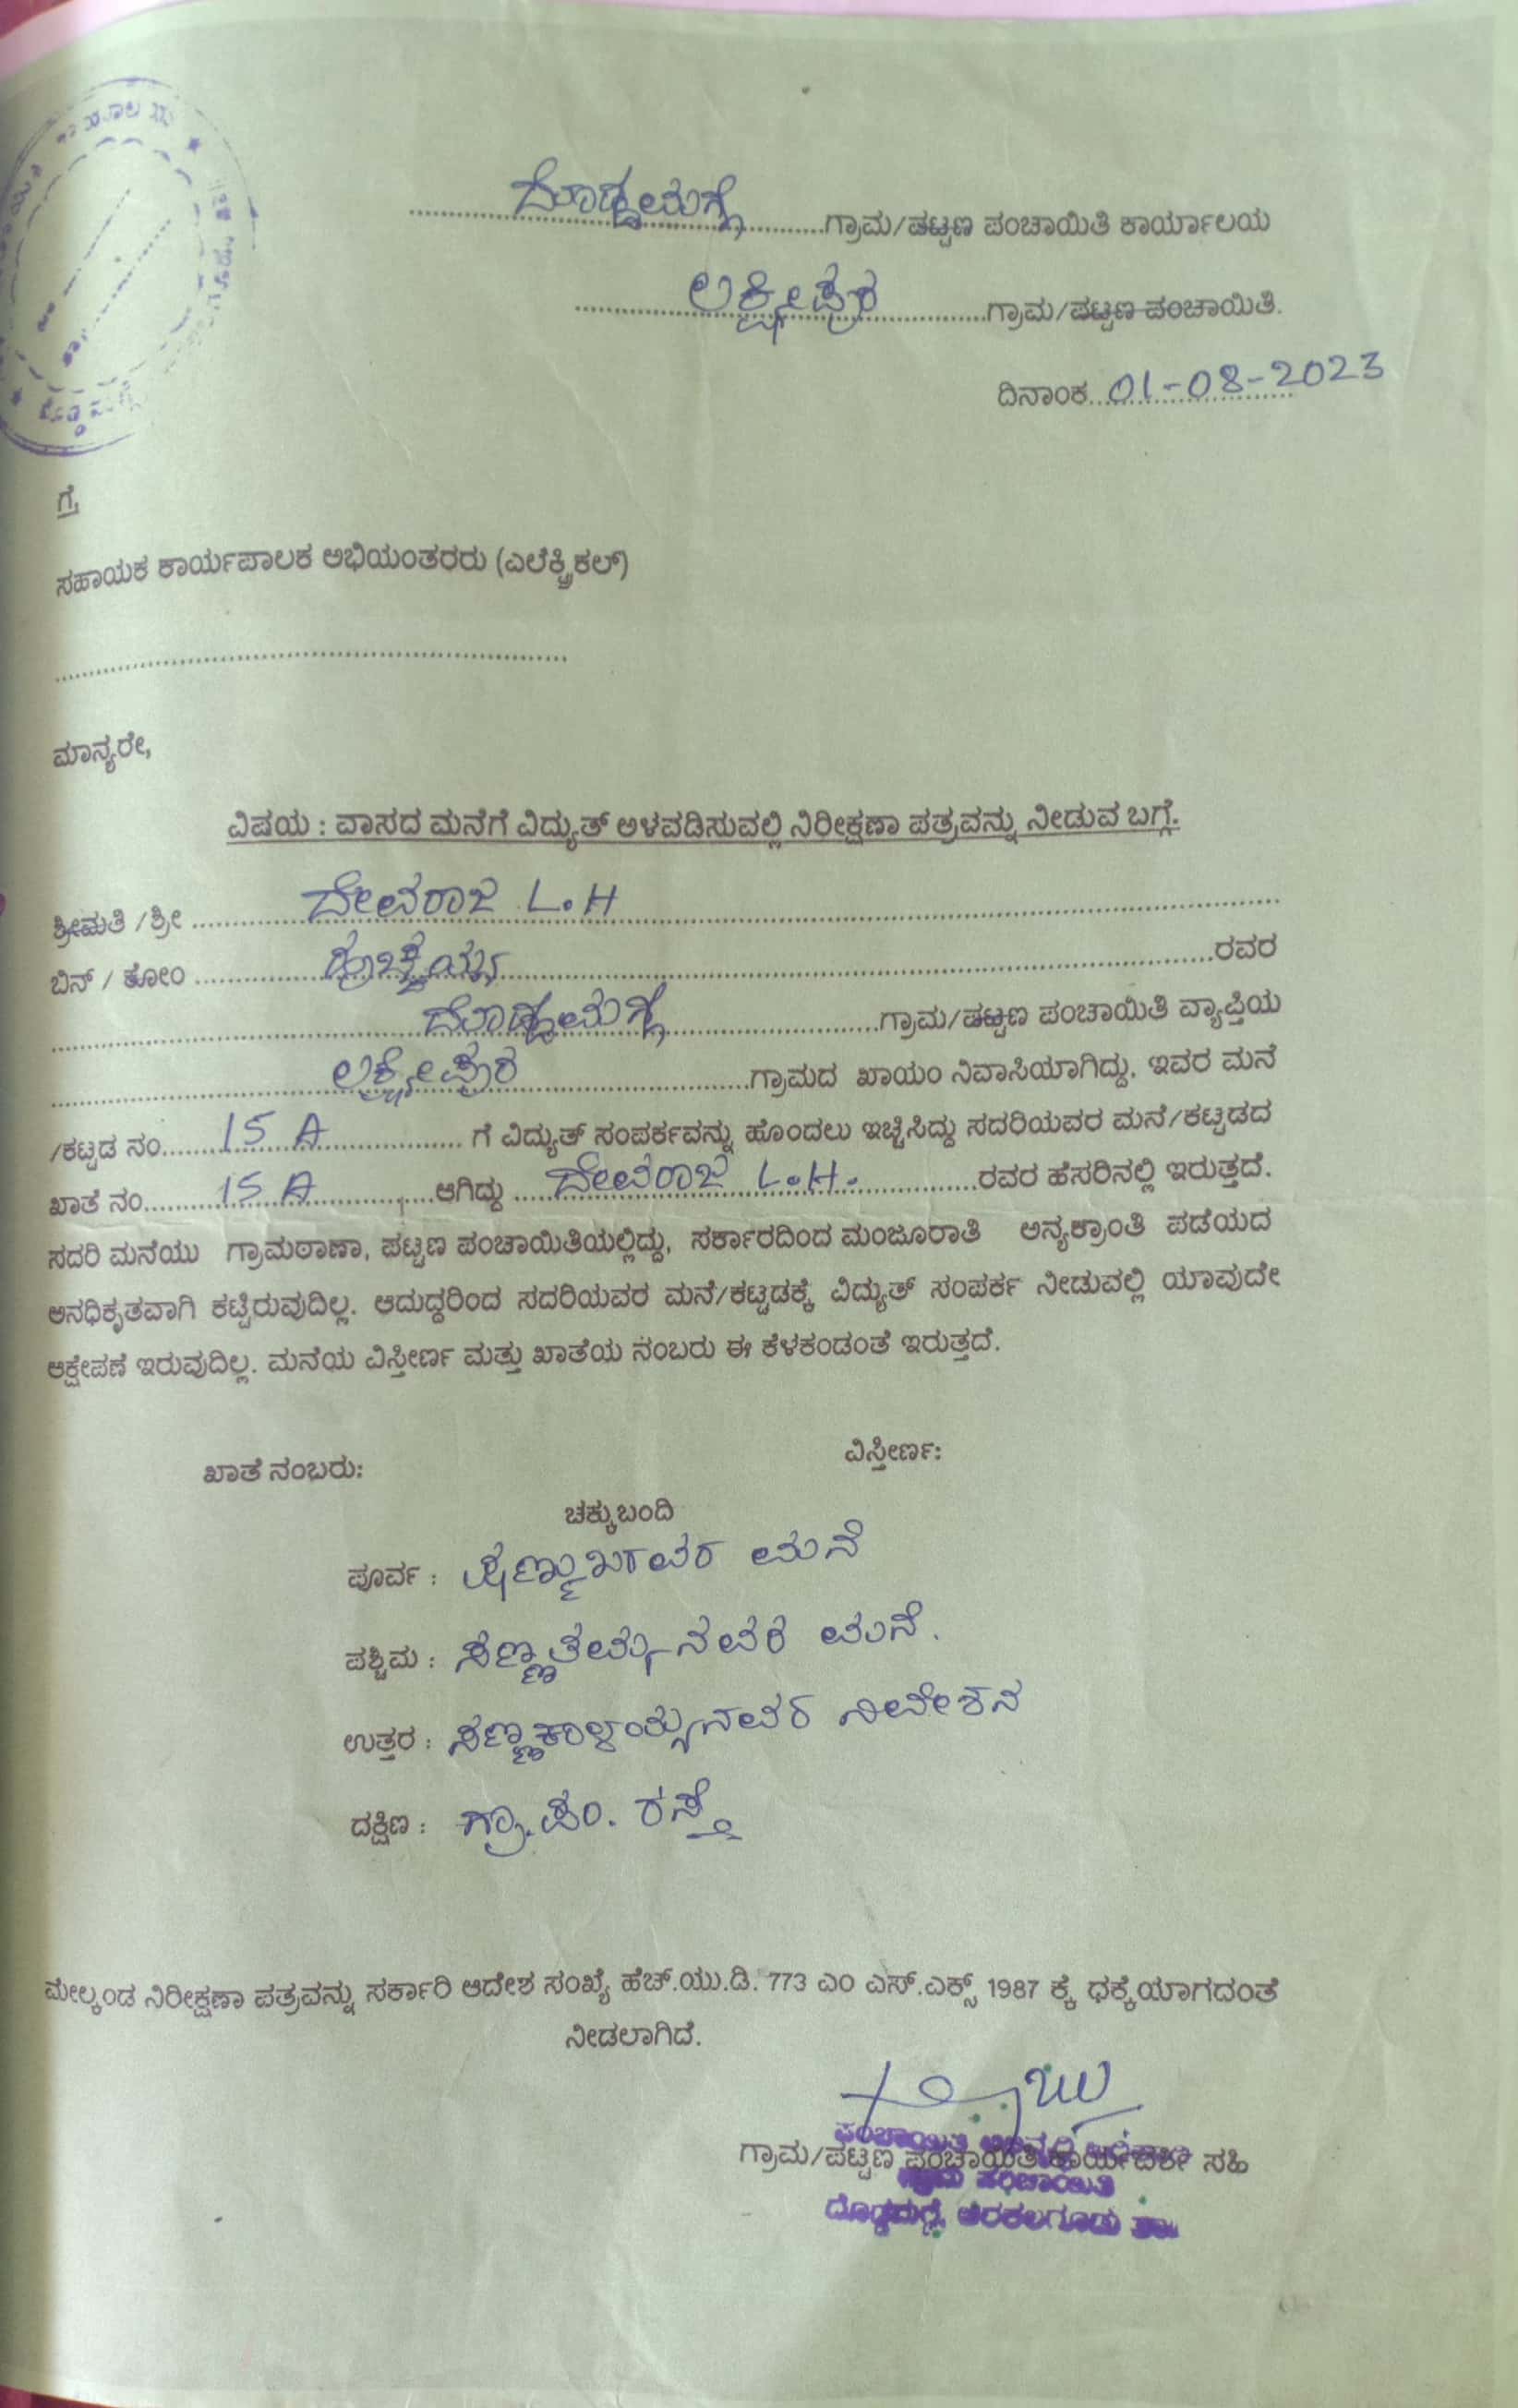 ದೊಡ್ಡಮಗ್ಗೆ ಗ್ರಾಮ/ಪಟ್ಟಣ ಪಂಚಾಯಿತಿ ಕಾರ್ಯಾಲಯ
ಲಕ್ಷ್ಮೀಪುರ ಗ್ರಾಮ/ಪಟ್ಟಣ ಪಂಚಾಯಿತಿ.
ದಿನಾಂಕ 01-08-2023
ಗೆ,
ಸಹಾಯಕ ಕಾರ್ಯಪಾಲಕ ಅಭಿಯಂತರರು (ಎಲೆಕ್ಟ್ರಿಕಲ್)
ಮಾನ್ಯರೇ,
ವಿಷಯ : ವಾಸದ ಮನೆಗೆ ವಿದ್ಯುತ್ ಅಳವಡಿಸುವಲ್ಲಿ ನಿರೀಕ್ಷಣಾ ಪತ್ರವನ್ನು ನೀಡುವ ಬಗ್ಗೆ.
ಶ್ರೀಮತಿ /ಶ್ರೀ ದೇವರಾಜ L.H
ಬಿನ್ / ಕೋಂ ರವರ
ದೊಡ್ಡಮಗ್ಗೆ ಗ್ರಾಮ/ಪಟ್ಟಣ ಪಂಚಾಯಿತಿ ವ್ಯಾಪ್ತಿಯ
ಲಕ್ಷ್ಮೀಪುರ ಗ್ರಾಮದ ಖಾಯಂ ನಿವಾಸಿಯಾಗಿದ್ದು, ಇವರ ಮನೆ
/ಕಟ್ಟಡ ನಂ. 15 A ಗೆ ವಿದ್ಯುತ್ ಸಂಪರ್ಕವನ್ನು ಹೊಂದಲು ಇಚ್ಚಿಸಿದ್ದು ಸದರಿಯವರ ಮನೆ/ಕಟ್ಟಡದ
ಖಾತೆ ನಂ. 15 A ಆಗಿದ್ದು ದೇವರಾಜ L.H. ರವರ ಹೆಸರಿನಲ್ಲಿ ಇರುತ್ತದೆ.
ಸದರಿ ಮನೆಯು ಗ್ರಾಮಠಾಣಾ, ಪಟ್ಟಣ ಪಂಚಾಯಿತಿಯಲ್ಲಿದ್ದು, ಸರ್ಕಾರದಿಂದ ಮಂಜೂರಾತಿ ಅನ್ಯಕ್ರಾಂತಿ ಪಡೆಯದ
ಅನಧಿಕೃತವಾಗಿ ಕಟ್ಟಿರುವುದಿಲ್ಲ. ಆದುದ್ದರಿಂದ ಸದರಿಯವರ ಮನೆ/ಕಟ್ಟಡಕ್ಕೆ ವಿದ್ಯುತ್ ಸಂಪರ್ಕ ನೀಡುವಲ್ಲಿ ಯಾವುದೇ
ಆಕ್ಷೇಪಣೆ ಇರುವುದಿಲ್ಲ. ಮನೆಯ ವಿಸ್ತೀರ್ಣ ಮತ್ತು ಖಾತೆಯ ನಂಬರು ಈ ಕೆಳಕಂಡಂತೆ ಇರುತ್ತದೆ.
ಖಾತೆ ನಂಬರು: ವಿಸ್ತೀರ್ಣ:
ಚಕ್ಕುಬಂದಿ
ಪೂರ್ವ : ಷಣ್ಮುಖರವರ ಮನೆ
ಪಶ್ಚಿಮ : ಸಣ್ಣತಮ್ಮನವರ ಮನೆ.
ಉತ್ತರ : ಸಣ್ಣಕಾಳಯ್ಯನವರ ನಿವೇಶನ
ದಕ್ಷಿಣ : ಗ್ರಾ.ಪಂ. ರಸ್ತೆ
ಮೇಲ್ಕಂಡ ನಿರೀಕ್ಷಣಾ ಪತ್ರವನ್ನು ಸರ್ಕಾರಿ ಆದೇಶ ಸಂಖ್ಯೆ ಹೆಚ್.ಯು.ಡಿ. 773 ಎಂ ಎಸ್.ಎಕ್ಸ್ 1987 ಕ್ಕೆ ಧಕ್ಕೆಯಾಗದಂತೆ
ನೀಡಲಾಗಿದೆ.
ಗ್ರಾಮ/ಪಟ್ಟಣ ಪಂಚಾಯಿತಿ ಕಾರ್ಯದರ್ಶಿ ಸಹಿ
ಗ್ರಾಮ ಪಂಚಾಯಿತಿ
ದೊಡ್ಡಮಗ್ಗೆ, ಅರಕಲಗೂಡು ತಾ||